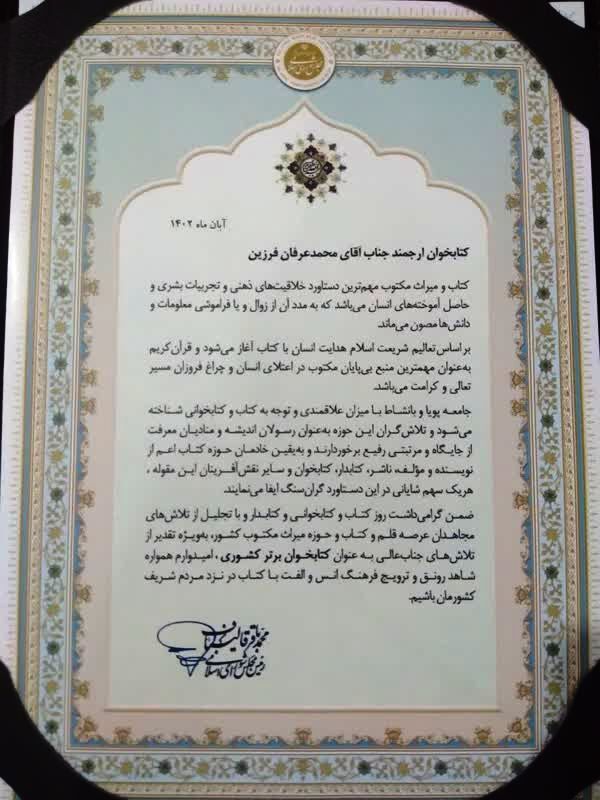 مجلس شورای اسلامی
آبان ماه ۱۴۰۲
کتابخوان ارجمند جناب آقای محمدعرفان فرزین
کتاب و میراث مکتوب مهم‌ترین دستاورد خلاقیت‌های ذهنی و تجربیات بشری و
حاصل آموخته‌های انسان می‌باشد که به مدد آن از زوال و یا فراموشی معلومات و
دانش‌ها مصون می‌ماند.
بر اساس تعالیم شریعت اسلام هدایت انسان با کتاب آغاز می‌شود و قرآن‌کریم
به‌عنوان مهمترین منبع بی‌پایان مکتوب در اعتلای انسان و چراغ فروزان مسیر
تعالی و کرامت می‌باشد.
جامعه پویا و بانشاط با میزان علاقمندی و توجه به کتاب و کتابخوانی شناخته
می‌شود و تلاش‌گران این حوزه به‌عنوان رسولان اندیشه و منادیان معرفت
از جایگاه و مرتبتی رفیع برخوردارند و به‌یقین خادمان حوزه کتاب اعم از
نویسنده و مؤلف، ناشر، کتابدار، کتابخوان و سایر نقش‌آفرینان این مقوله ،
هریک سهم شایانی در این دستاورد گران‌سنگ ایفا می‌نمایند.
ضمن گرامی‌داشت روز کتاب و کتابخوانی و کتابدار و با تجلیل از تلاش‌های
مجاهدان عرصه قلم و کتاب و حوزه میراث مکتوب کشور، به‌ویژه تقدیر از
تلاش‌های جناب‌عالی به عنوان کتابخوان برتر کشوری ، امیدوارم همواره
شاهد رونق و ترویج فرهنگ انس و الفت با کتاب در نزد مردم شریف
کشورمان باشیم.
محمدباقر قالیباف
رئیس مجلس شورای اسلامی